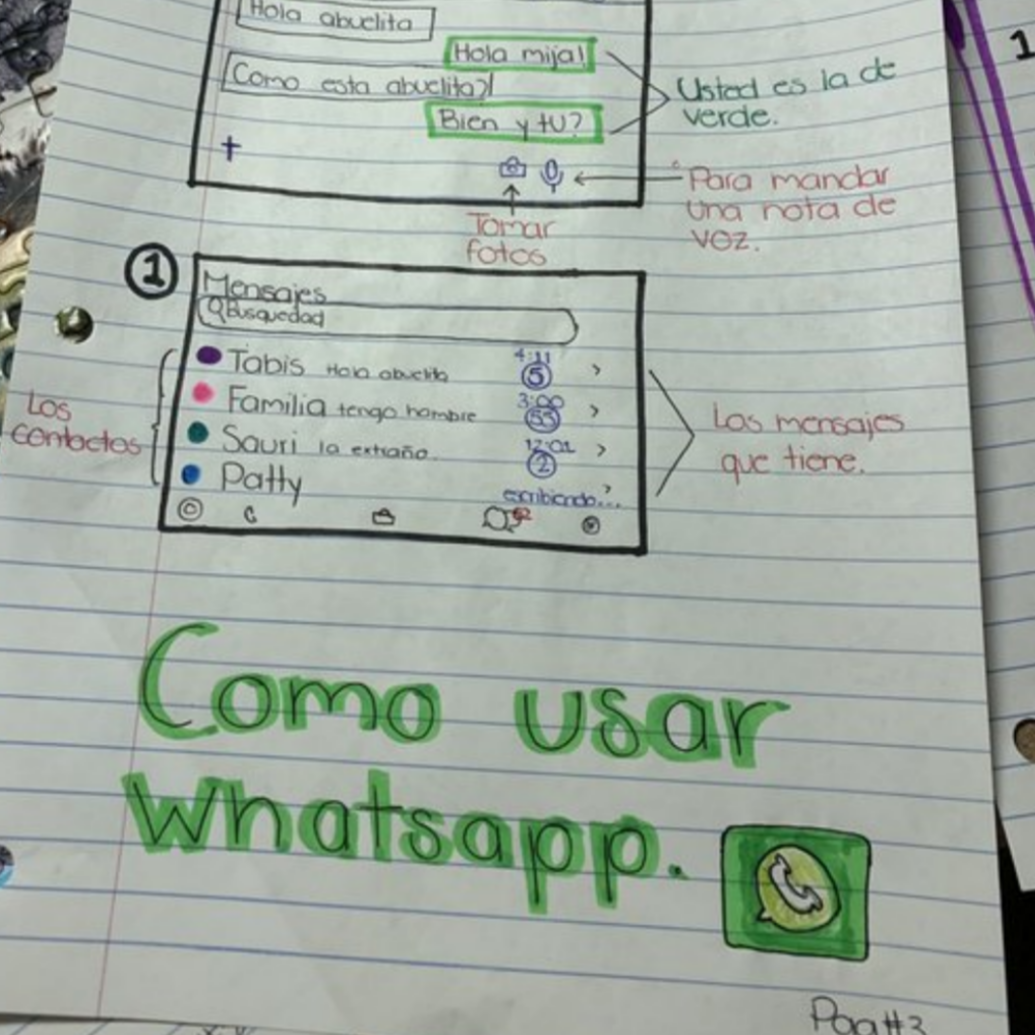 Hola abuelita
Hola mija!
Como esta abuelita?
Bien y tu?
Usted es la de
verde.
+
Para mandar
una nota de
voz.
Tomar
fotos
1
Mensajes
Busquedad
Tabis Hola abuelita 4:11 5 >
Familia tengo hambre 3:00 53 >
Sauri la extraño. 12:01 2 >
Patty escribiendo... >
Los
contactos
Los mensajes
que tiene.
Como usar
Whatsapp.
Pag#3
1